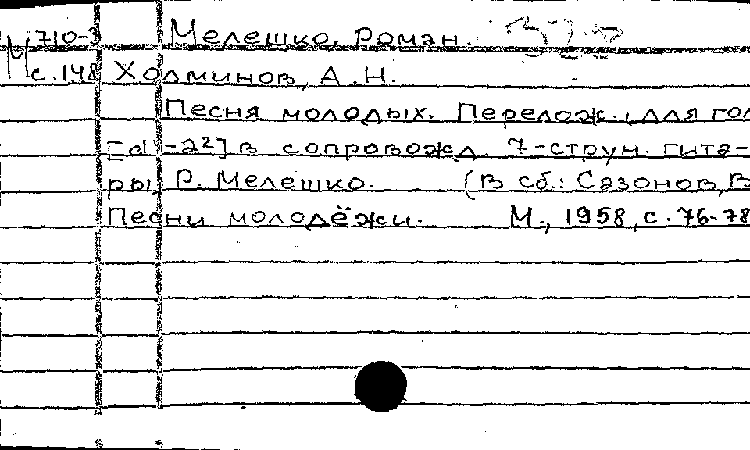 М 710-3 Мелешко, Роман.
с. 148 Холминов, А.Н.
Песня молодых. Перелож. для гол
[d¹-a²] в сопровожд. 7-струн. гита-
ры Р. Мелешко. (В сб.: Сазонов, В
Песни молодёжи. М., 1958, с. 76-78